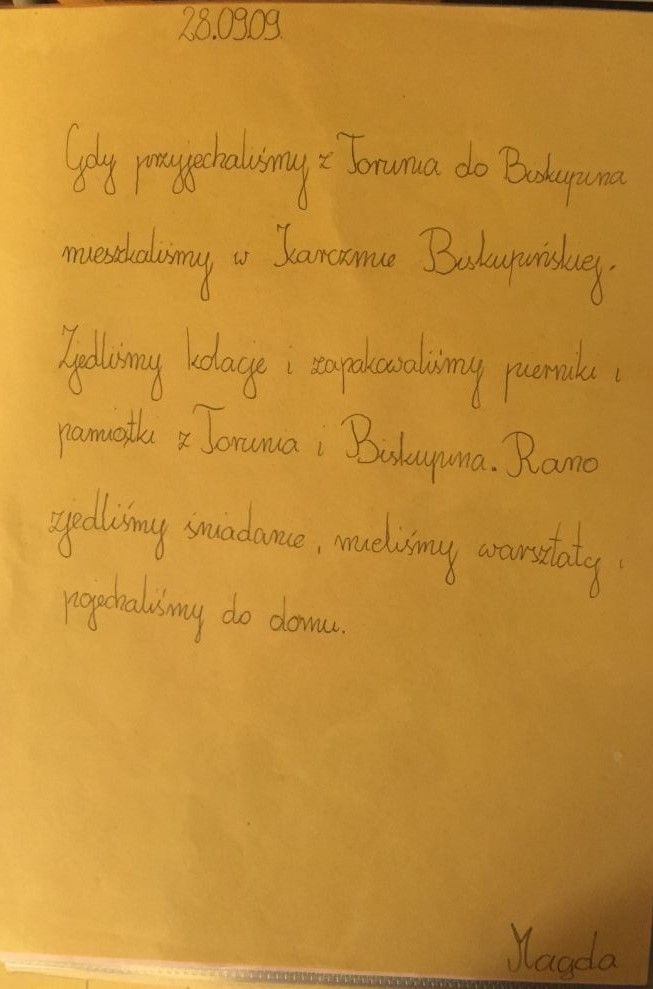 28.09.09.
Gdy przyjechaliśmy z Torunia do Biskupina
mieszkaliśmy w Karczmie Biskupińskiej.
Zjedliśmy kolacje i zapakowaliśmy pierniki i
pamiątki z Torunia i Biskupina. Rano
zjedliśmy śniadanie, mieliśmy warsztaty i
pojechaliśmy do domu.
Magda